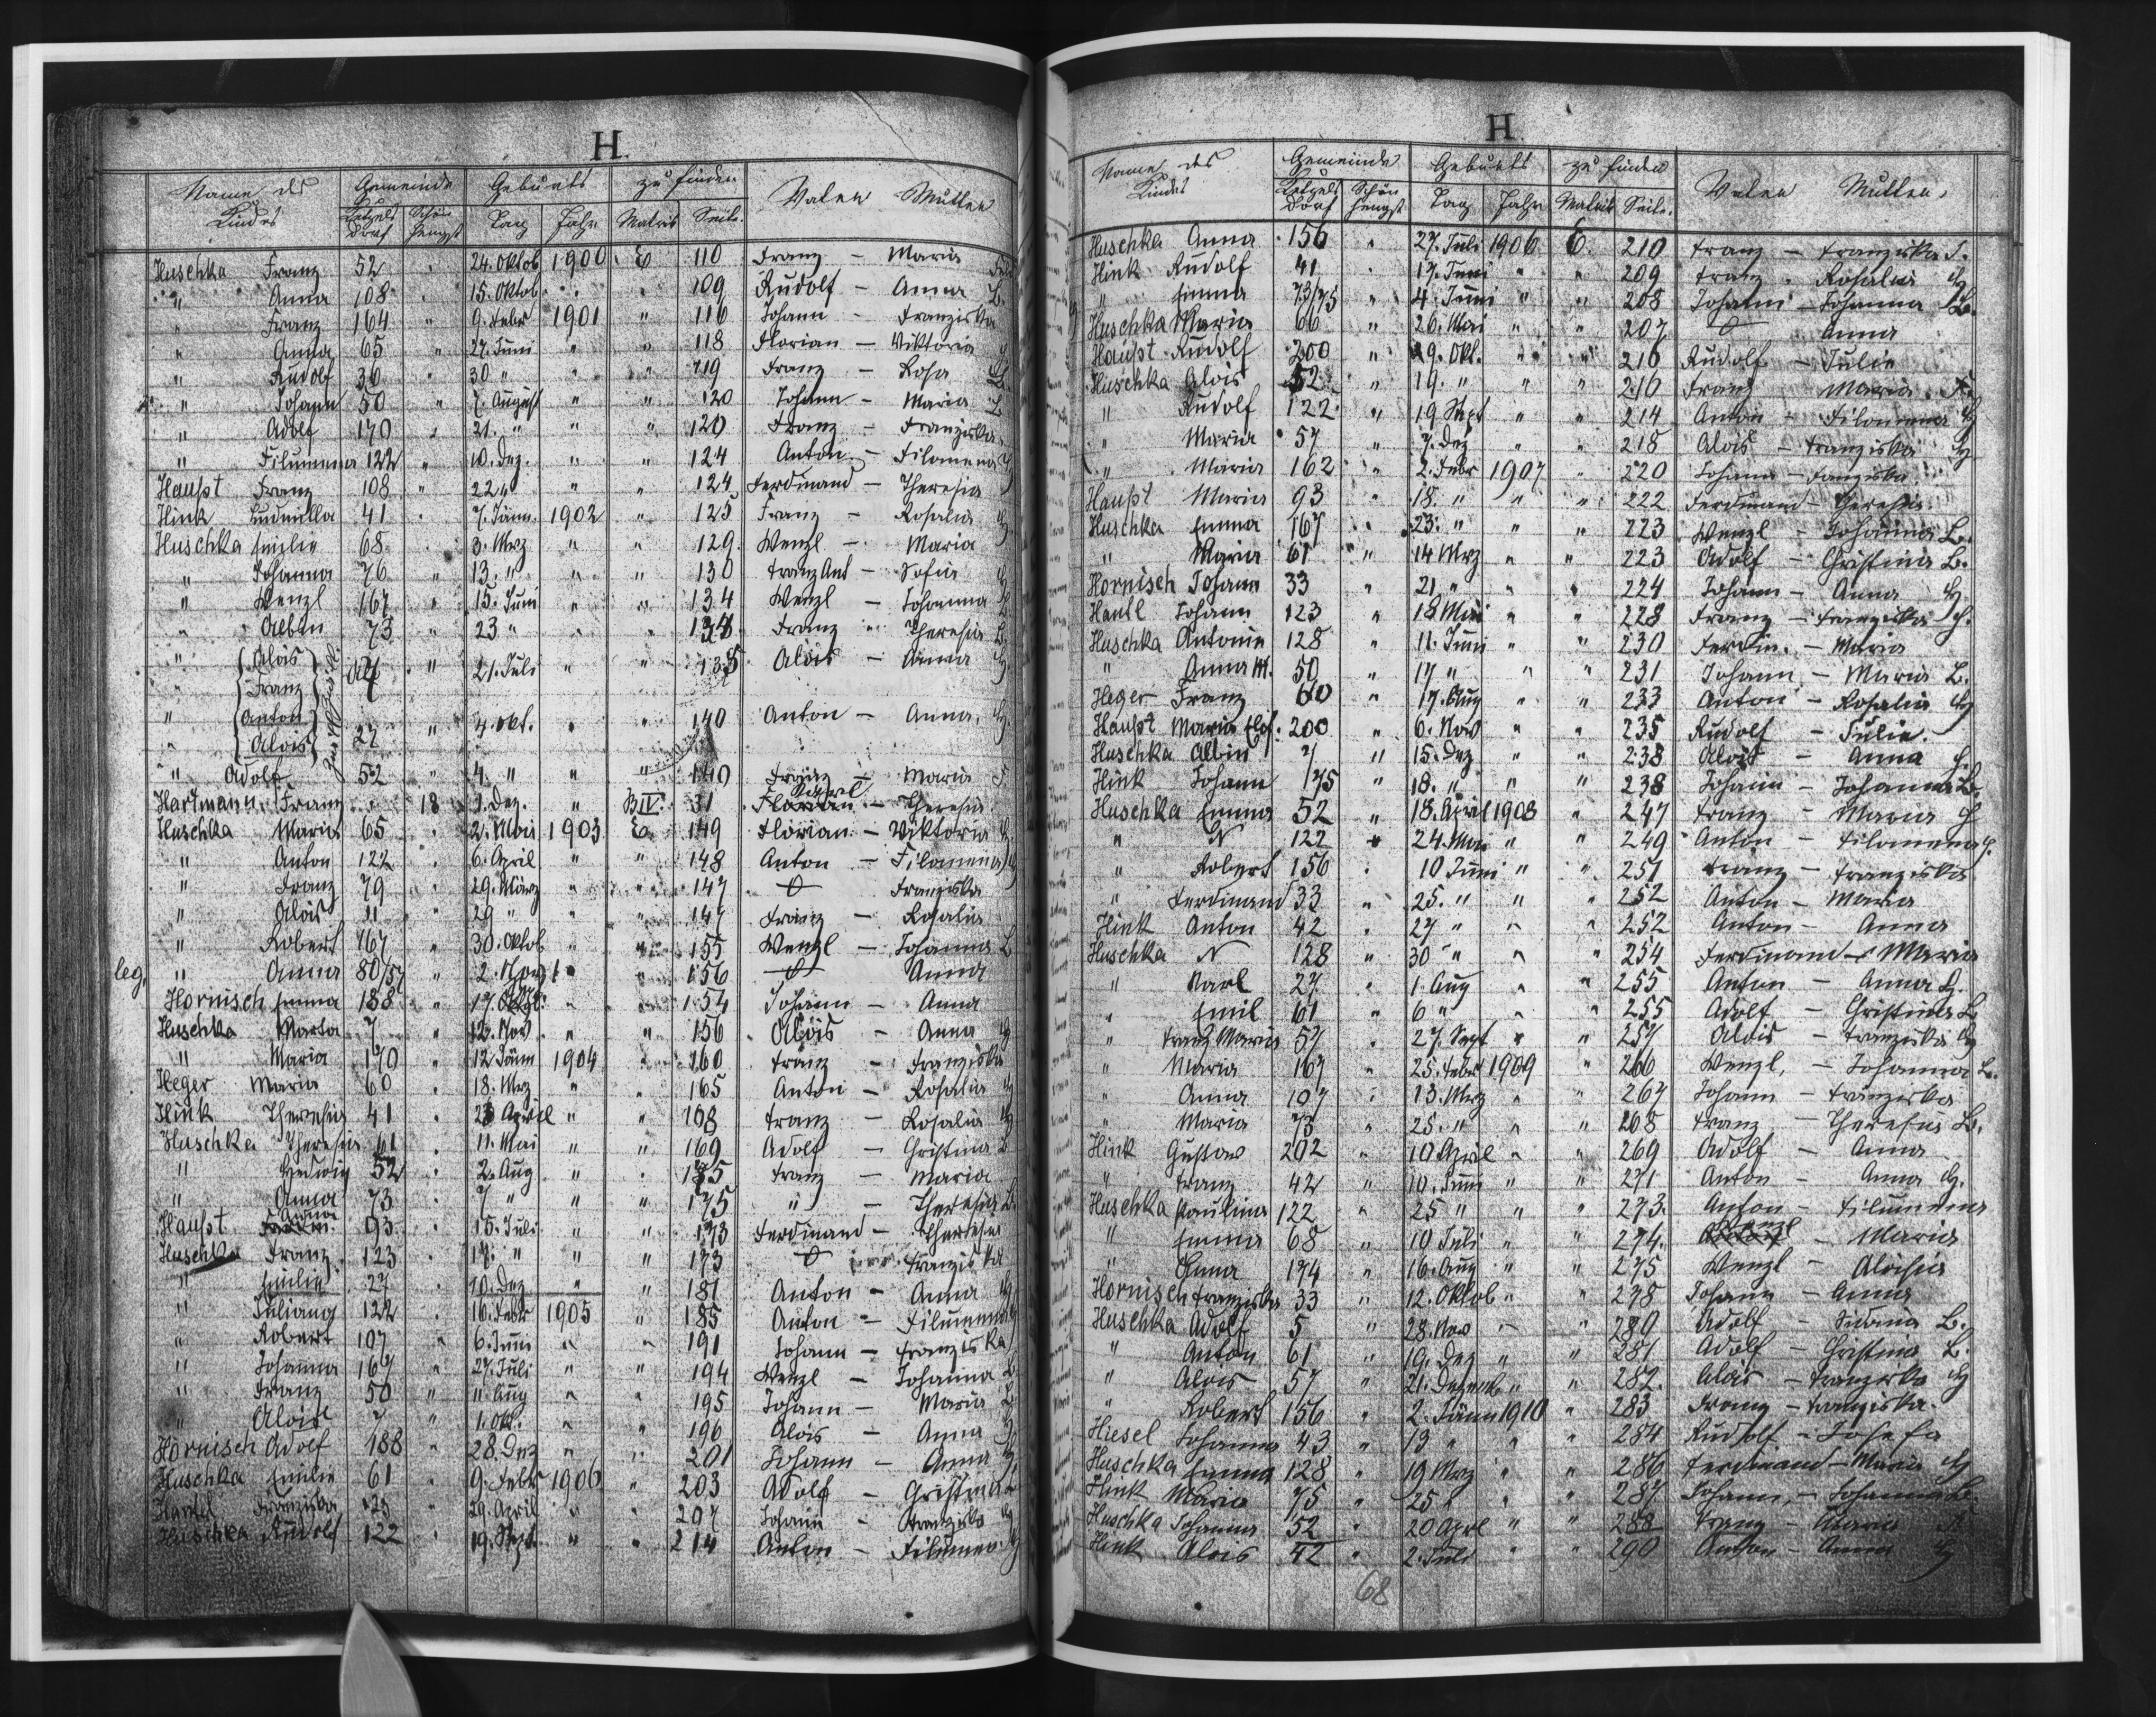 H.
Name des Kindes Gemeinde Geburts zu finden Vater Mutter
Ketzels dorf Schön hengst Tag Jahr Matrik Seite.
Huschka Franz 52 " 24. Oktob 1900 E 110 Franz — Maria
" Anna 108 " 15. Oktob " " 109 Rudolf — Anna L.
" Franz 164 " 9. Febr 1901 " 116 Johann — Franziska
" Anna 65 " 27. Juni " " 118 Florian — Viktoria
" Rudolf 36 " 30 " " " 119 Franz — Rosa L.
" Johann 50 " 7. August " " 120 Johann — Maria L
" Adolf 170 " 21. " " " 120 Franz — Franziska
" Filumena 122 " 10. Dez. " " 124 Anton — Filomena
Haupt Franz 108 " 22 " " " 124 Ferdinand — Theresia
Hink Ludmilla 41 " 7. Jänn. 1902 " 125 Franz — Rosalia
Huschka Emilie 68 " 3. Mrz " " 129 Wenzl — Maria
" Johanna 76 " 13. " " " 130 Franz Ant — Sofia
" Wenzl 167 " 15. Juni " " 134 Wenzl — Johanna L
" Alben 73 " 23 " " " 134 Franz " Theresia L.
" Alois " 21. Juli " " 138 Alois — Anna
" Franz
" Anton 27 " 7. Okt. " " 140 Anton — Anna
" Alois
" Adolf 52 " 4. " " " 140 Franz — Maria
Hartmann Franz " 18 1. Dez. " B IV. 31 Florian — Theresia
Huschka Maria 65 " 2. Mai 1903 E 149 Florian — Viktoria
" Anton 122 " 6. April " " 148 Anton — Filomena
" Franz 79 " 29. März " " 147 O Franziska
" Alois 11 " 29 " " " 147 Franz — Rosalia
" Robert 167 " 30. Oktob " " 155 Wenzl — Johanna L
leg. " Anna 80/57 " 2. Nov " " 156 O Anna
Hornisch Emma 188 " 17. " " 154 Johann — Anna
Huschka Marta 7 " 12. Nov " " 156 Alois — Anna
" Maria 170 " 12 Jänn 1904 " 160 Franz — Franziska
Heger Maria 60 " 18. Mrz " " 165 Anton — Rosalia
Hink Theresia 41 " 23 April " " 168 Franz — Rosalia
Huschka Theresia 61 " 11. Mai " " 169 Adolf — Christina L
" Hedwig 52 " 2. Aug " " 175 Franz — Maria
" Anna 73 " 7 " " " 175 " — Theresia L.
Haupt Anna 93 " 15. Juli " " 173 Ferdinand — Theresia
Huschka Franz 123 " 17. " " " 173 O Franziska
" Emilie 27 " 10. Dez " " 181 Anton — Anna
" Juliana 122 " 16. Febr 1905 " 185 Anton — Filumena
" Robert 107 " 6. Juni " " 191 Johann — Franziska
" Johanna 167 " 27. Juli " " 194 Wenzl — Johanna L
" Franz 50 " 11 Aug " " 195 Johann — Maria L
" Alois 7 " 1. Okt. " " 196 Alois — Anna
Hornisch Adolf 188 " 28. Dez " " 201 Johann — Anna
Huschka Emilie 61 " 9. Febr 1906 " 203 Adolf — Christina
Hantl Franziska 123 " 29. April " " 207 Johann — Franziska
Huschka Rudolf 122 " 19. Sept. " " 214 Anton — Filumen
H
Name des Kindes Gemeinde Geburts zu finden Vater Mutter
Ketzels dorf Schön hengst Tag Jahr Matrik Seite.
Huschka Anna 156 " 27. Juli 1906 E. 210 Franz — Franziska
Hink Rudolf 41 " 17. Juni " " 209 Franz — Rosalia
" Emma 73/75 " 4. Juni " " 208 Johann — Johanna L.
Huschka Maria 66 " 26. Mai " " 207 O Anna
Haupt Rudolf 200 " 29. Okt. " " 216 Rudolf — Julie
Huschka Alois 52 " 19. " " " 216 Franz Maria
" Rudolf 122 " 19 Sept " " 214 Anton — Filomena
" Maria 57 " 7. Dez " " 218 Alois — Franziska
" Maria 162 " 2. Febr 1907 " 220 Johann — Franziska
Haupt Maria 93 " 18. " " " 222 Ferdinand — Theresia
Huschka Emma 167 " 23. " " " 223 Wenzl — Johanna L.
" Maria 61 " 14 Mrz " " 223 Adolf — Christina L.
Hornisch Johann 33 " 21 " " " 224 Johann — Anna
Hantl Johann 123 " 18 Mai " " 228 Franz — Franziska
Huschka Antonia 128 " 11. Juni " " 230 Ferdin. — Maria
" Anna M. 50 " 17 " " " 231 Johann — Maria L.
Heger Franz 60 " 17. Aug " " 233 Anton — Rosalia
Haupt Maria Elis. 200 " 6. Nov " " 235 Rudolf — Julie
Huschka Albin 7 " 15. Dez " " 238 Alois — Anna
Hink Johann 175 " 18. " " " 238 Johann — Johanna L.
Huschka Emma 52 " 18. April 1908 " 247 Franz — Maria
" N 122 " 24. Mai " " 249 Anton — Filomena
" Robert 156 " 10 Juni " " 251 Franz — Franziska
" Ferdinand 33 " 25. " " " 252 Anton — Maria
Hink Anton 42 " 27 " " " 252 Anton — Anna
Huschka N 128 " 30 " " " 254 Ferdinand — Maria
" Karl 27 " 1. Aug " " 255 Anton — Anna
" Emil 61 " 6 " " " 255 Adolf — Christina L
" Franz Maria 57 " 27. Sept " " 257 Alois — Franziska
" Maria 167 " 25. Febr 1909 " 266 Wenzl — Johanna L.
" Anna 107 " 13. Mrz " " 267 Johann — Franziska
" Maria 73 " 25. " " " 268 Franz — Theresia L.
Hink Gustav 202 " 10 April " " 269 Adolf — Anna
" Franz 42 " 10. Juni " " 271 Anton — Anna
Huschka Paulina 122 " 25 " " " 273. Anton — Filumena
" Emma 68 " 10 Juli " " 274. Wenzl — Maria
" Anna 174 " 16. Aug " " 275 Wenzl — Aloisia
Hornisch Franziska 33 " 12. Oktob " " 278 Johann — Anna
Huschka Adolf 5 " 28. Nov " " 280 Adolf — L.
" Anton 61 " 19. Dez " " 281 Adolf — Christina L.
" Alois 57 " 21. Dezemb " " 282. Alois — Franziska
" Robert 156 " 2. Jänn 1910 " 283 Franz — Franziska
Hiesel Johanna 43 " 13 " " " 284 Rudolf — Josefa
Huschka Emma 128 " 19 Mrz " " 286 Ferdinand — Maria
Hink Maria 75 " 25 " " " 287 Johann — Johanna L.
Huschka Johanna 52 " 20 Aprl " " 288 Franz — Maria
Hink Alois 42 " 2. Juli " " 290 Anton — Anna
68